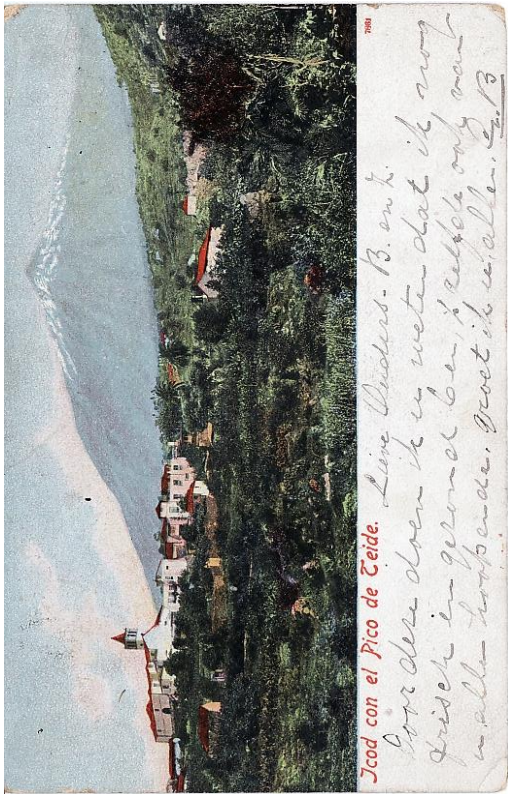 Icod con el Pico de Teide.
7981
Lieve Ouders. B. en Z.
Door deze doen ik u weten dat ik nog
frisch en gezond ben, 't zelfde ook van
u allen hoopende. Groet ik u allen. B